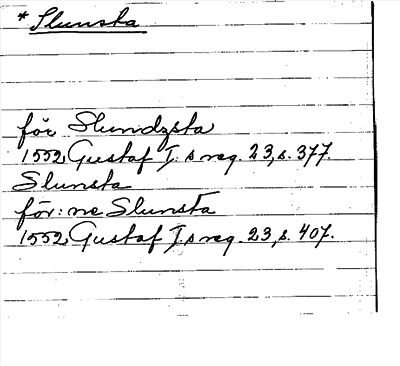 * Slunsta
för Slundzsta
1552 Gustaf I:s reg. 23, s. 377.
Slunsta
för: ne Slunsta
1552 Gustaf I:s reg. 23, s. 407.